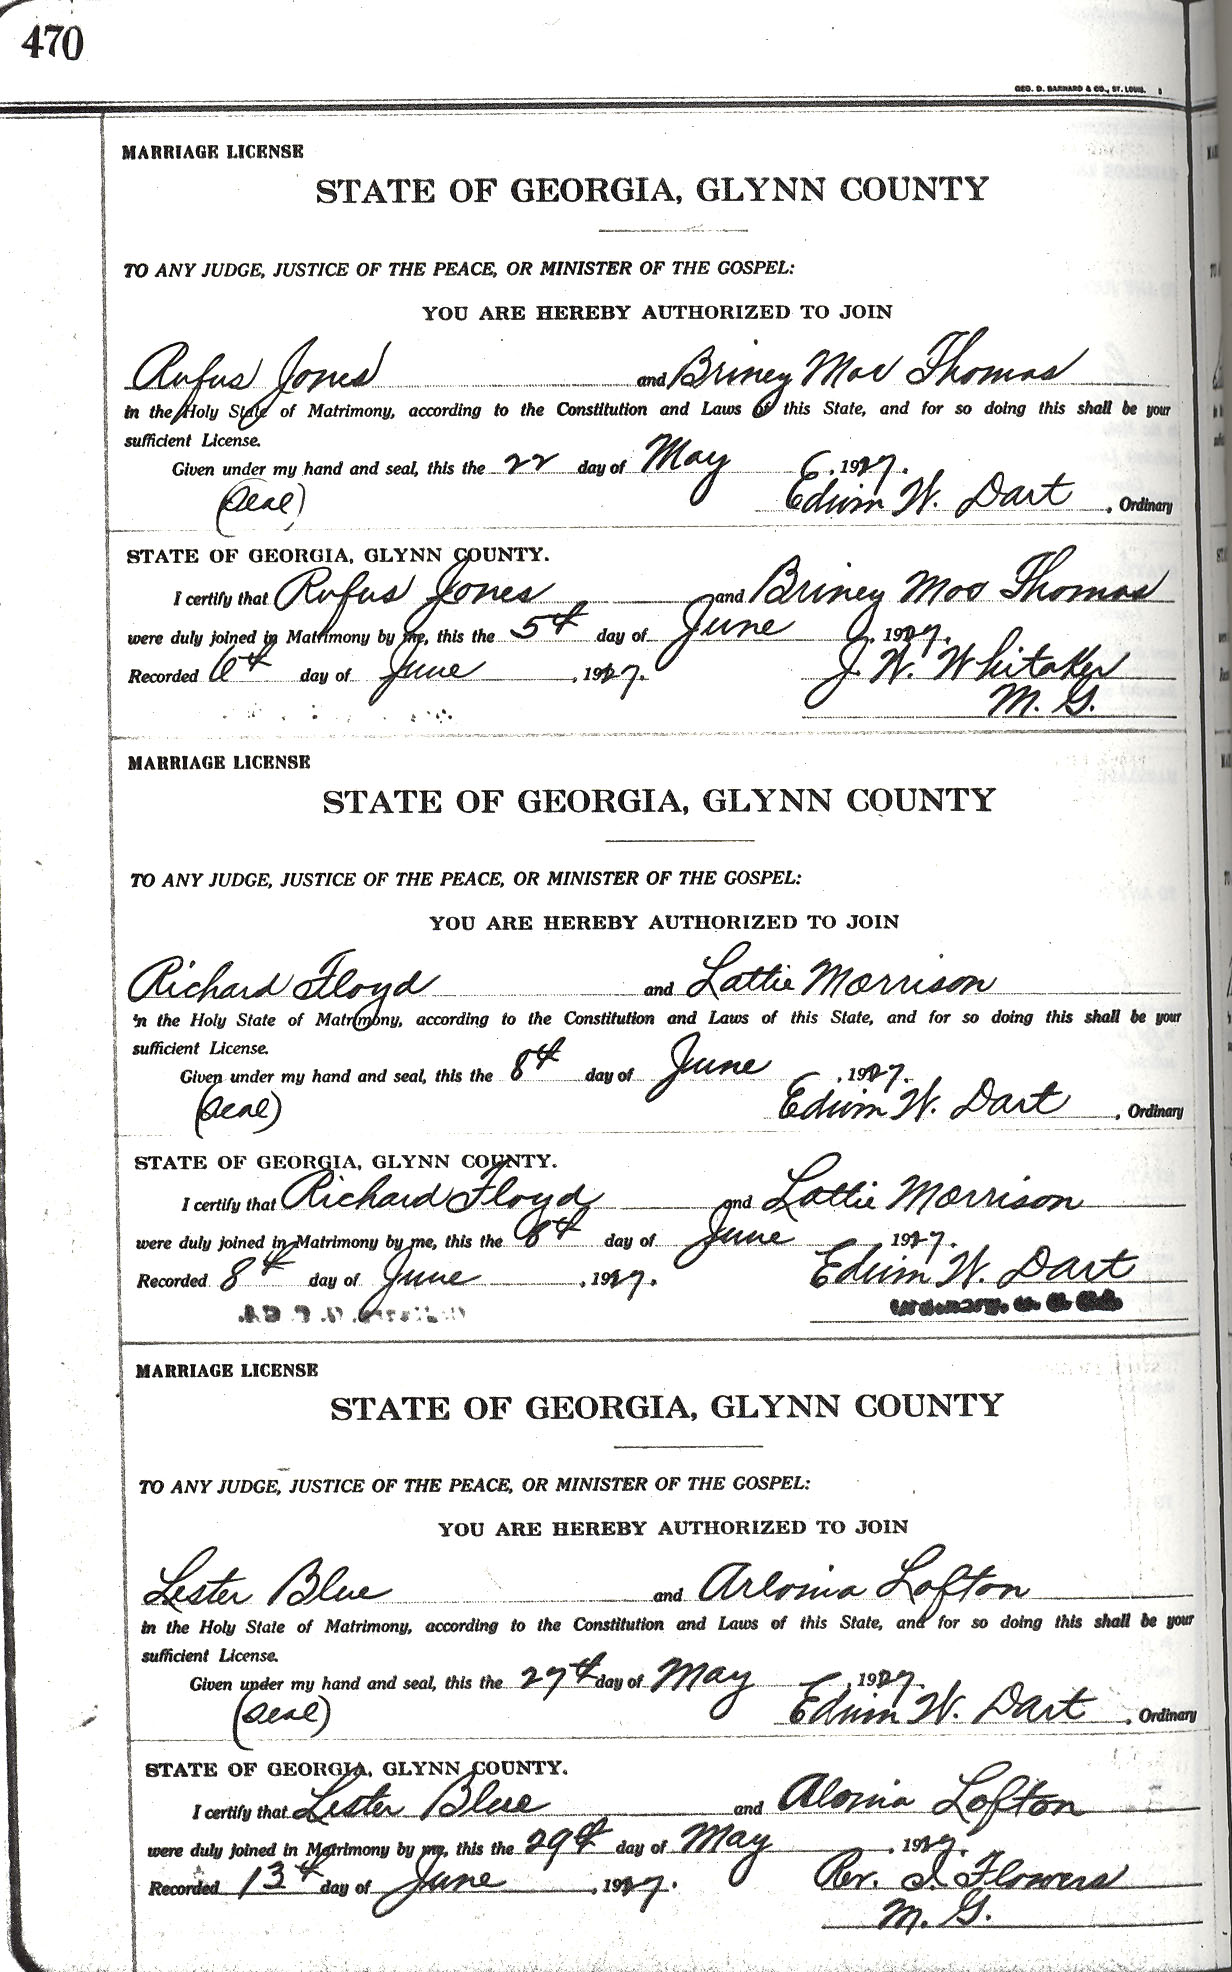 470
GEO. D. BARNARD & CO., ST. LOUIS.
MARRIAGE LICENSE
STATE OF GEORGIA, GLYNN COUNTY
TO ANY JUDGE, JUSTICE OF THE PEACE, OR MINISTER OF THE GOSPEL:
YOU ARE HEREBY AUTHORIZED TO JOIN
Rufus Jones and Briney Mae Thomas
in the Holy State of Matrimony, according to the Constitution and Laws of this State, and for so doing this shall be your
sufficient License.
Given under my hand and seal, this the 22 day of May, 1927.
(Seal) Edwin W. Dart, Ordinary
STATE OF GEORGIA, GLYNN COUNTY.
I certify that Rufus Jones and Briney Mae Thomas
were duly joined in Matrimony by me, this the 5th day of June, 1927.
Recorded 6th day of June, 1927. J. W. Whitaker
M. G.
MARRIAGE LICENSE
STATE OF GEORGIA, GLYNN COUNTY
TO ANY JUDGE, JUSTICE OF THE PEACE, OR MINISTER OF THE GOSPEL:
YOU ARE HEREBY AUTHORIZED TO JOIN
Richard Floyd and Lattie Morrison
in the Holy State of Matrimony, according to the Constitution and Laws of this State, and for so doing this shall be your
sufficient License.
Given under my hand and seal, this the 8th day of June, 1927.
(Seal) Edwin W. Dart, Ordinary
STATE OF GEORGIA, GLYNN COUNTY.
I certify that Richard Floyd and Lattie Morrison
were duly joined in Matrimony by me, this the 8th day of June 1927.
Recorded 8th day of June, 1927. Edwin W. Dart
MARRIAGE LICENSE
STATE OF GEORGIA, GLYNN COUNTY
TO ANY JUDGE, JUSTICE OF THE PEACE, OR MINISTER OF THE GOSPEL:
YOU ARE HEREBY AUTHORIZED TO JOIN
Lester Blue and Arlonia Lofton
in the Holy State of Matrimony, according to the Constitution and Laws of this State, and for so doing this shall be your
sufficient License.
Given under my hand and seal, this the 27th day of May, 1927.
(Seal) Edwin W. Dart, Ordinary
STATE OF GEORGIA, GLYNN COUNTY.
I certify that Lester Blue and Alonia Lofton
were duly joined in Matrimony by me, this the 29th day of May, 1927.
Recorded 13th day of June, 1927. Rev. I. Flowers
M. G.